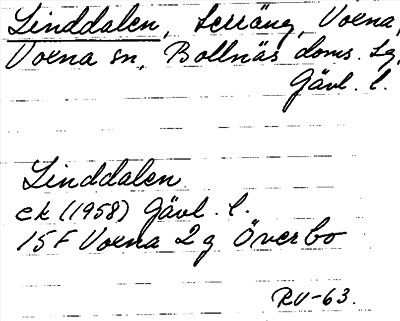 Linddalen, terräng, Voxna,
Voxna sn, Bollnäs doms. lg,
Gävl. l.
Linddalen
ek (1958) Gävl. l.
15F Voxna 2g Överbo
RV-63.